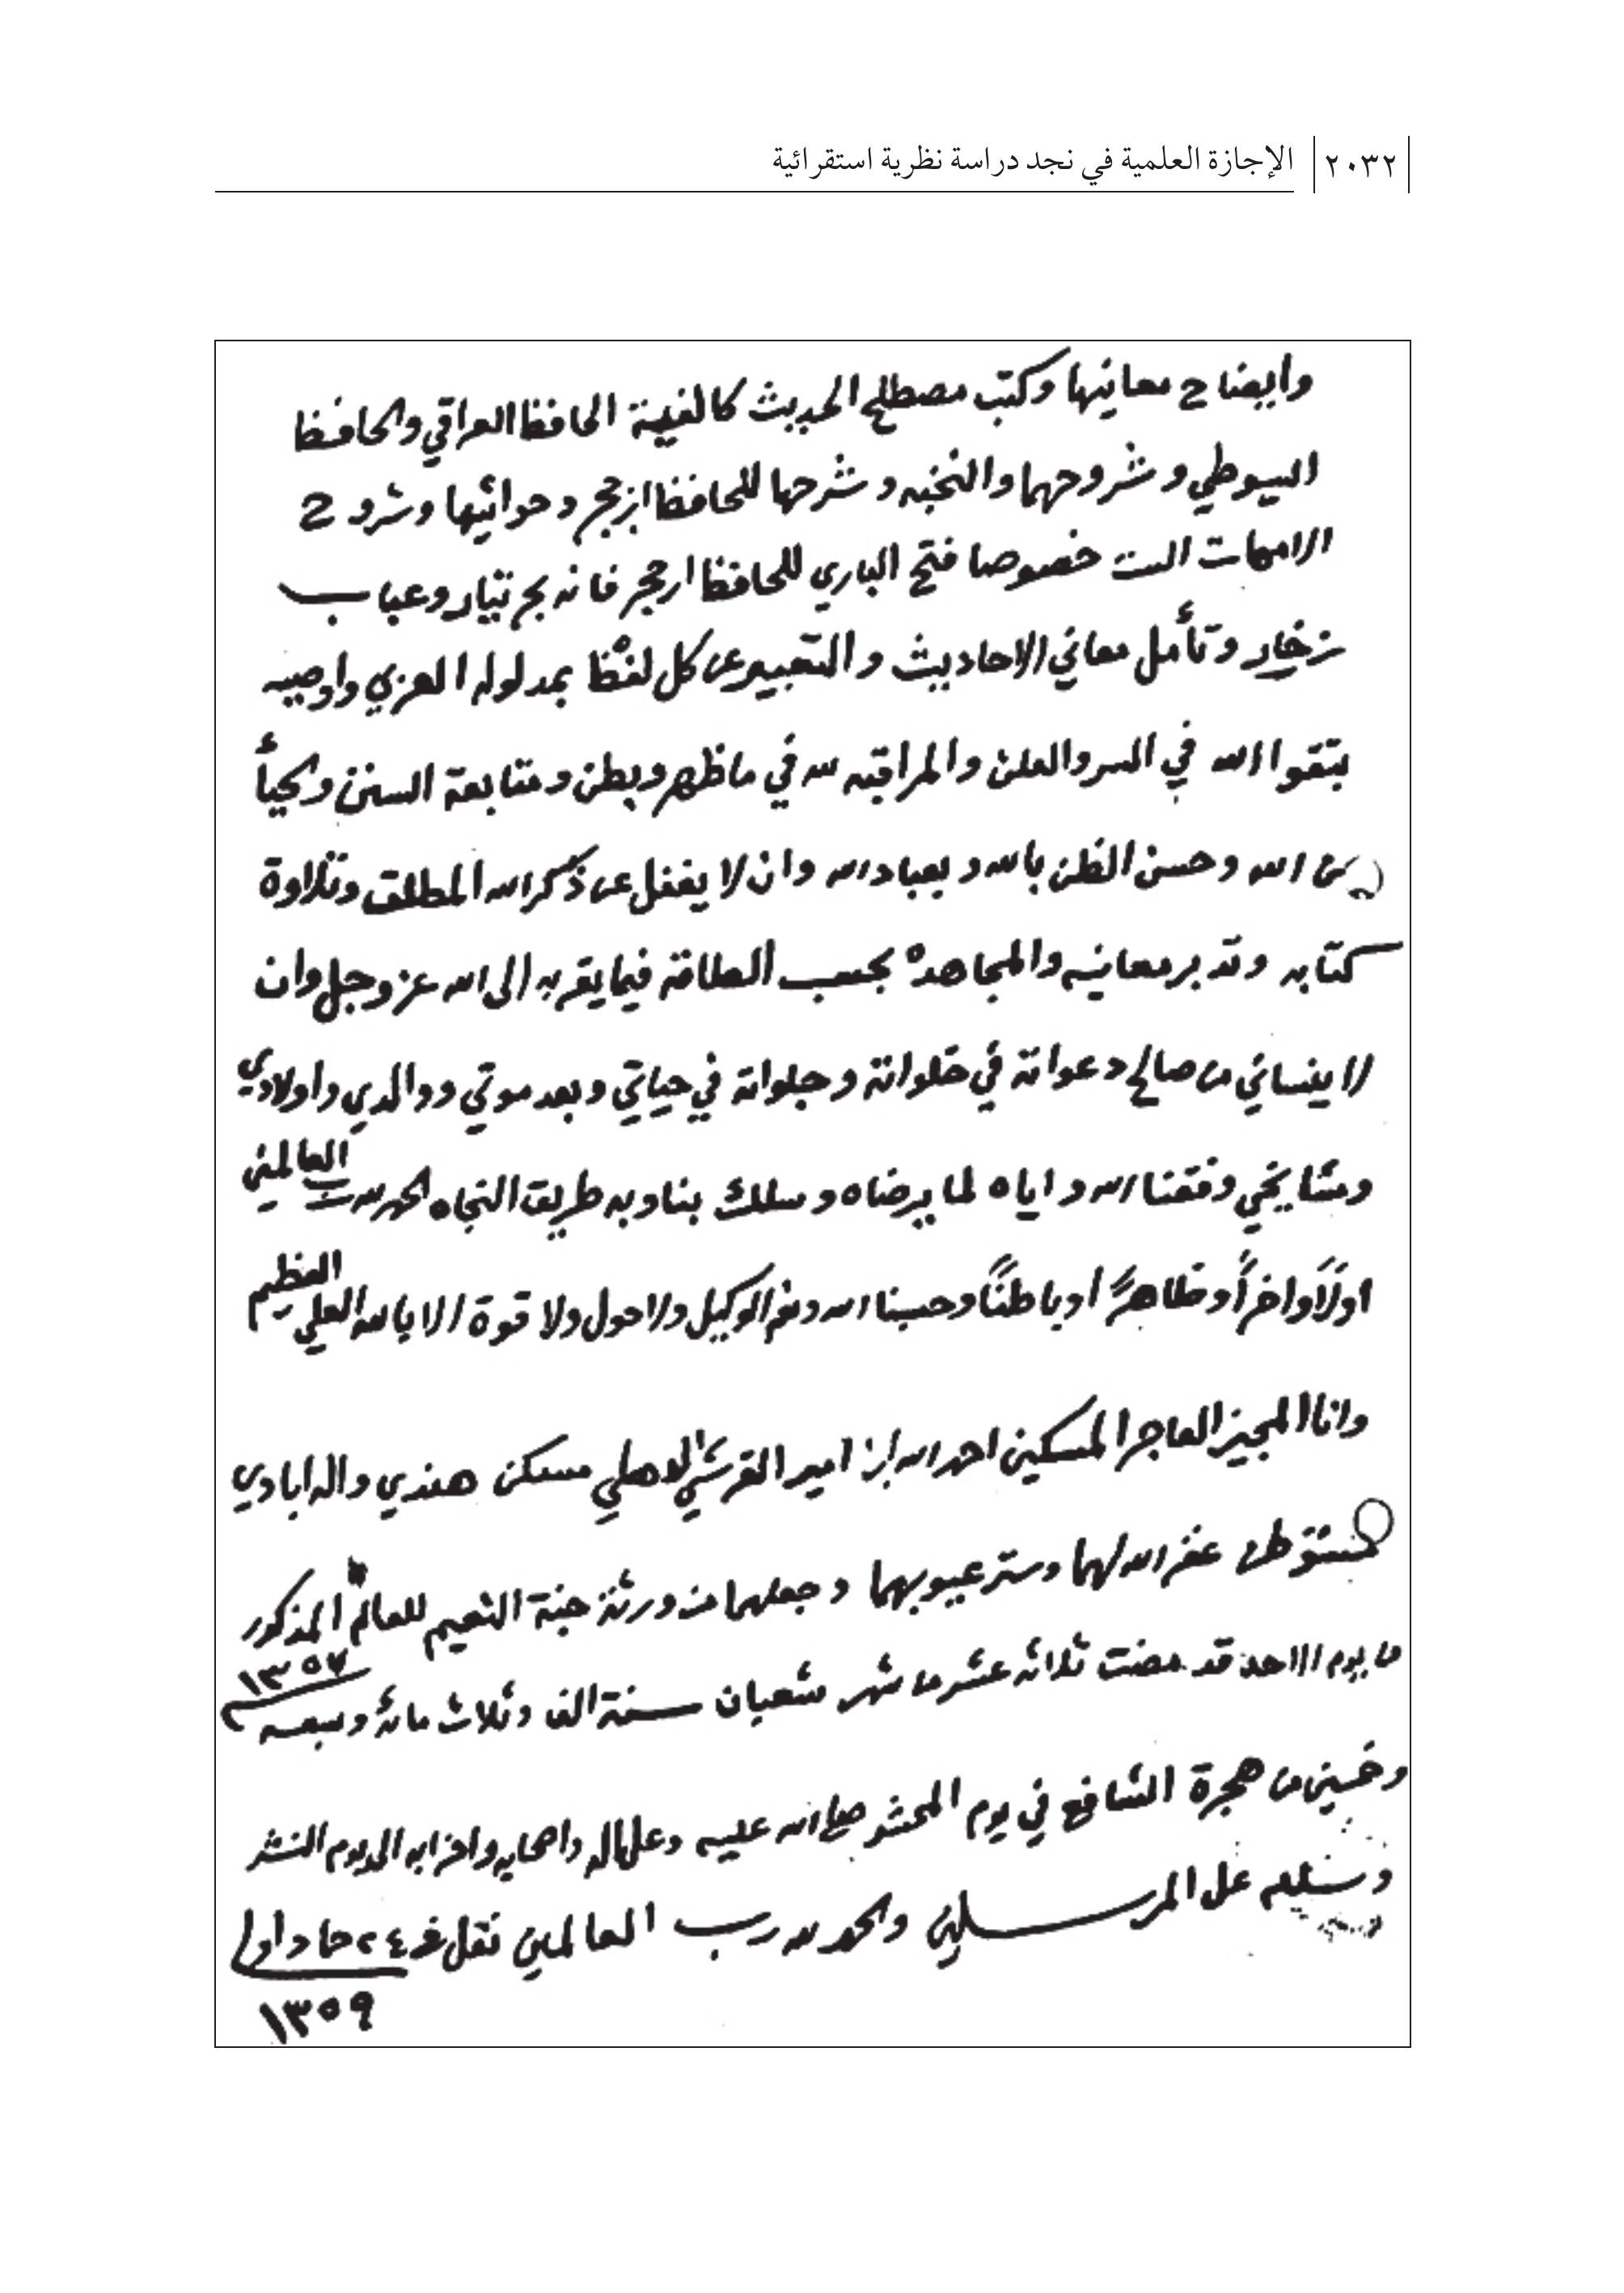 ٢٠٣٢ الإجازة العلمية في نجد دراسة نظرية استقرائية
وايضاح معانيها وكتب مصطلح الحديث كالفية الحافظ العراقي والحافظ
السيوطي وشروحهما والنخبه وشرحها للحافظ ابن حجر وحواشيها وشروح
الامهات الست خصوصا فتح الباري للحافظ ابن حجر فانه بحر تيار وعباب
زخار وتأمل معاني الاحاديث والتعبير عن كل لفظ بمدلوله العربي واوصيه
بتقوا الله في السر والعلن والمراقبه لله في ما ظهر وبطن ومتابعة السنن والحيأ
من الله وحسن الظن بالله وبعباد الله وان لا يغفل عن ذكر الله المطلق وتلاوة
كتابه وتدبر معانيه والمجاهده بحسب الطاقة فيما يقربه الى الله عز وجل وان
لا ينساني من صالح دعواته في خلواته وجلواته في حياتي وبعد موتي ووالدي واولادي
ومشايخي وفقنا الله واياه لما يرضاه وسلك بنا وبه طريق النجاه الحمد لله رب العالمين
اولاً واخراً وظاهراً وباطناً وحسبنا الله ونعم الوكيل ولا حول ولا قوة الا بالله العلي العظيم
وانا المجيز العاجز المسكين احمد الله ابن امير القرشي الدهلي مسكن هندي واله ابادي
مستوطن غفر الله لهما وستر عيوبهما وجعلهما من ورثة جنة النعيم للعالم المذكور
من يوم الاحد قد مضت ثلاثه عشر من شهر شعبان سنة الف وثلاث مائة وسبعه ١٣٥٧
وخمسين من هجرة الشافع في يوم المحشر صلى الله عليه وعلى اله واصحابه واحزابه الى يوم النشر
وسلام على المرسلين والحمد لله رب العالمين نقل في ٢٤ جماد اول
١٣٥٩